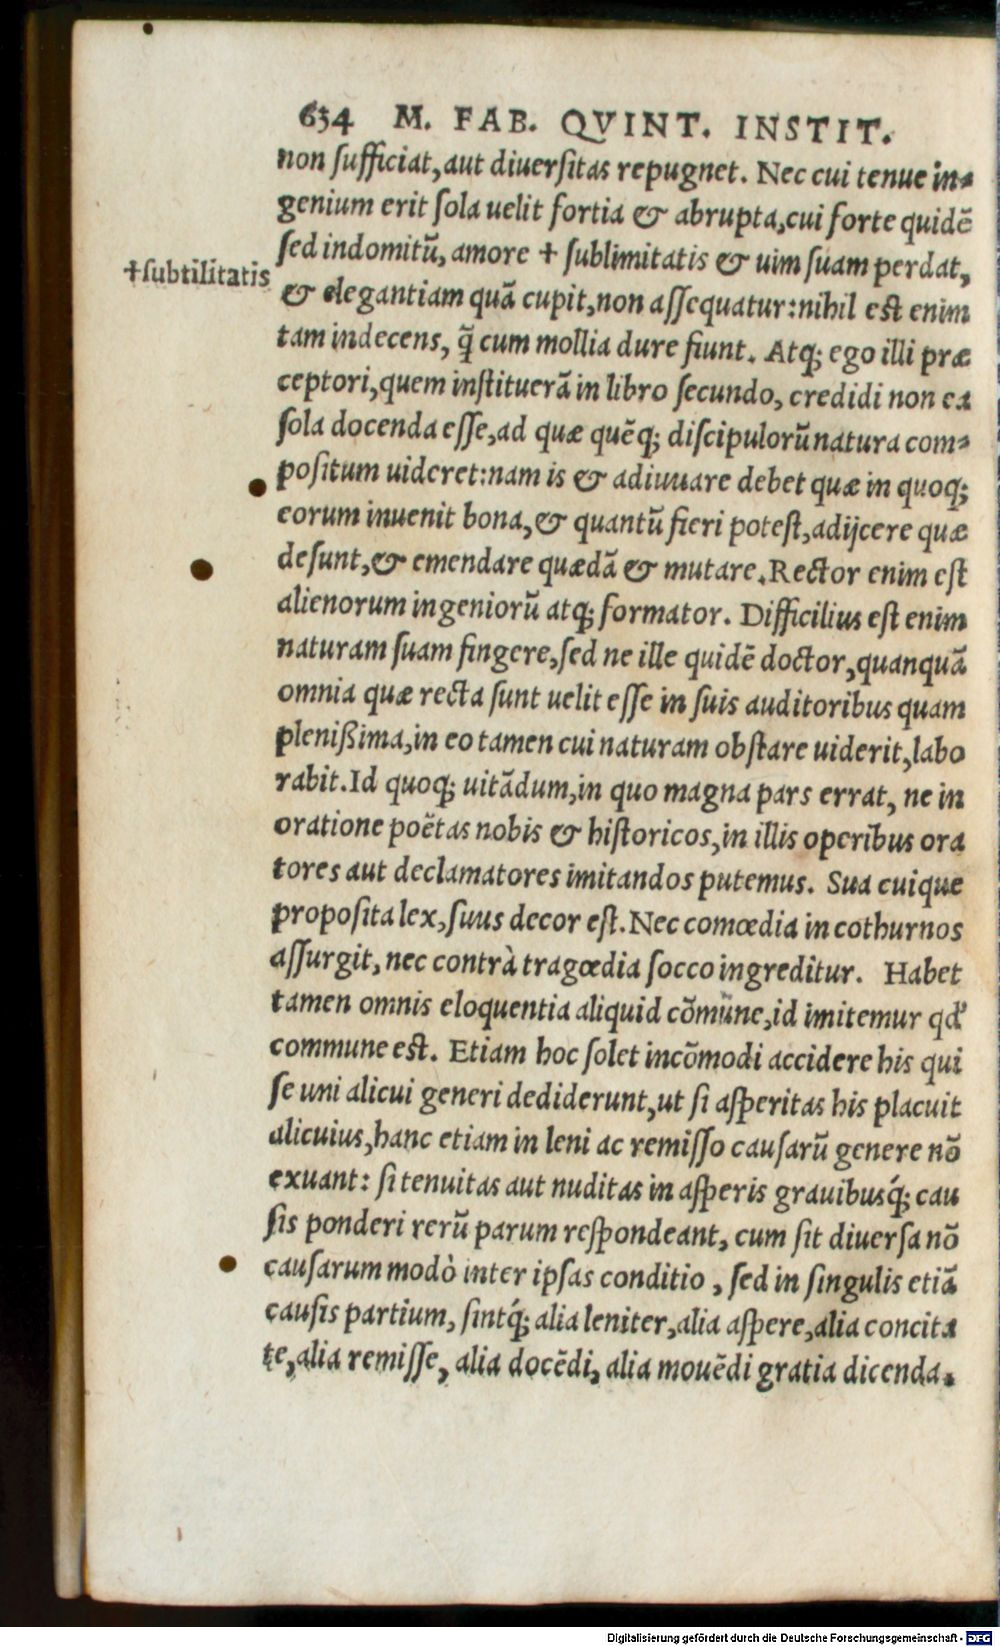 634 M. FAB. QVINT. INSTIT.
non ſufficiat, aut diuerſitas repugnet. Nec cui tenue in-
genium erit ſola uelit fortia & abrupta, cui forte quidē
ſed indomitū, amore † ſublimitatis & uim ſuam perdat,
†ſubtilitatis
& elegantiam quā cupit, non aſſequatur: nihil eſt enim
tam indecens, q̃ cum mollia dure fiunt. Atq; ego illi præ
ceptori, quem inſtituerā in libro ſecundo, credidi non ea
ſola docenda eſſe, ad quæ quēq; diſcipulorū natura com-
poſitum uideret: nam is & adiuuare debet quæ in quoq;
eorum inuenit bona, & quantū fieri poteſt, adijcere quæ
deſunt, & emendare quædā & mutare. Rector enim eſt
alienorum ingeniorū atq; formator. Difficilius eſt enim
naturam ſuam fingere, ſed ne ille quidē doctor, quanquā
omnia quæ recta ſunt uelit eſſe in ſuis auditoribus quam
pleniſsima, in eo tamen cui naturam obſtare uiderit, labo
rabit. Id quoq; uitādum, in quo magna pars errat, ne in
oratione poëtas nobis & hiſtoricos, in illis operibus ora
tores aut declamatores imitandos putemus. Sua cuique
propoſita lex, ſuus decor eſt. Nec comœdia in cothurnos
aſſurgit, nec contrà tragœdia ſocco ingreditur. Habet
tamen omnis eloquentia aliquid cōmune, id imitemur qď
commune eſt. Etiam hoc ſolet incōmodi accidere his qui
ſe uni alicui generi dediderunt, ut ſi aſperitas his placuit
alicuius, hanc etiam in leni ac remiſſo cauſarū genere nō
exuant: ſi tenuitas aut nuditas in aſperis grauibusq́; cau
ſis ponderi rerū parum reſpondeant, cum ſit diuerſa nō
cauſarum modò inter ipſas conditio, ſed in ſingulis etiā
cauſis partium, ſintq́; alia leniter, alia aſpere, alia concita
te, alia remiſſe, alia docēdi, alia mouēdi gratia dicenda.
Digitalisierung gefördert durch die Deutsche Forschungsgemeinschaft - DFG